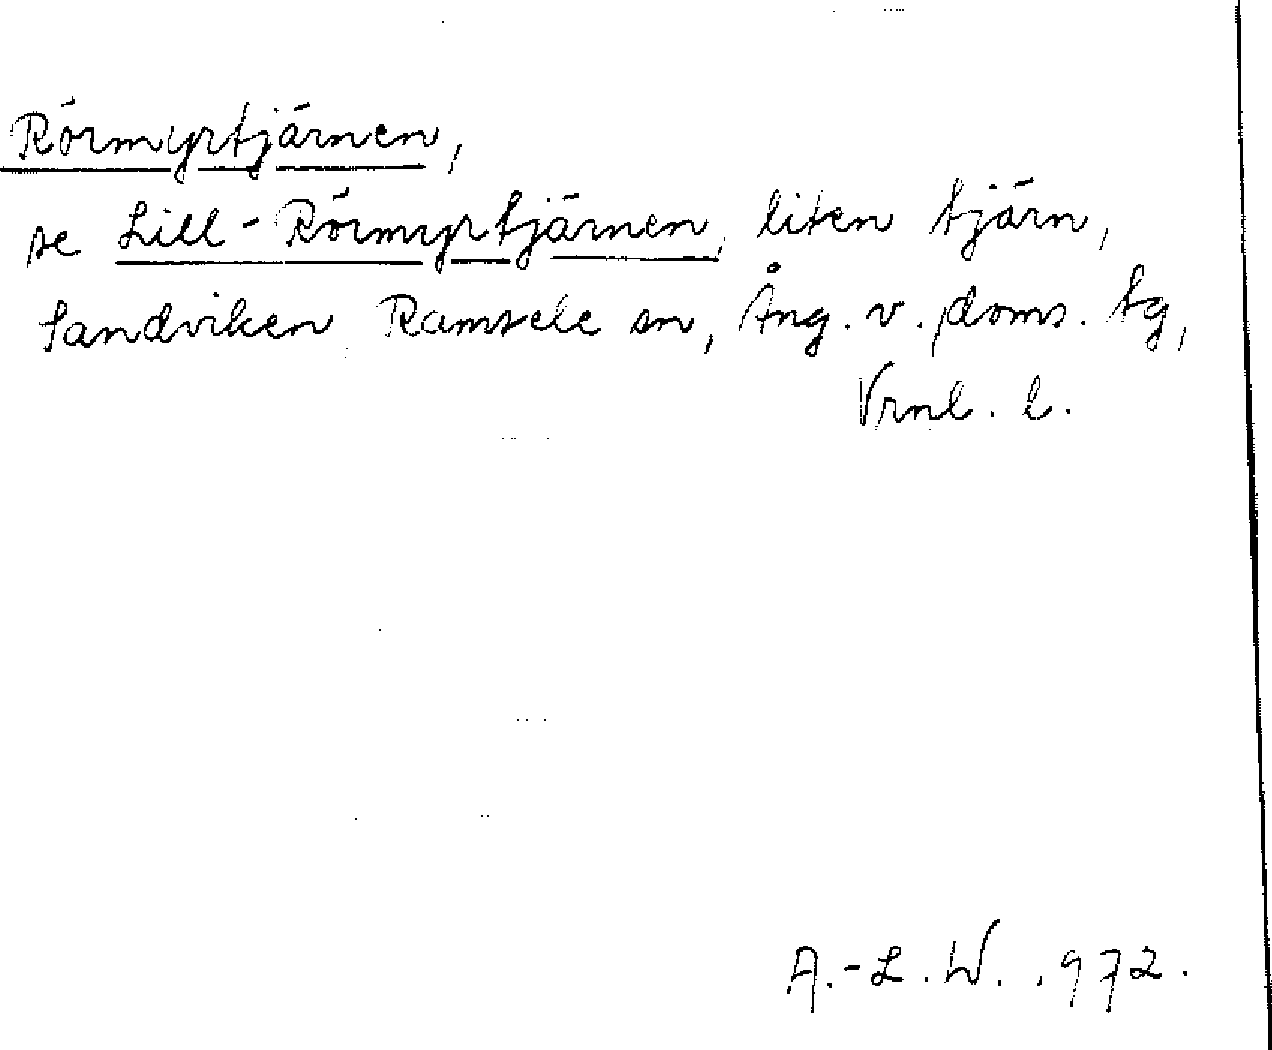 Rörmyrtjärnen,
se Lill-Rörmyrtjärnen, liten tjärn,
Sandviken Ramsele sn, Ång. v. doms. tg,
Vrnl. l.
A.-L.W. .972.